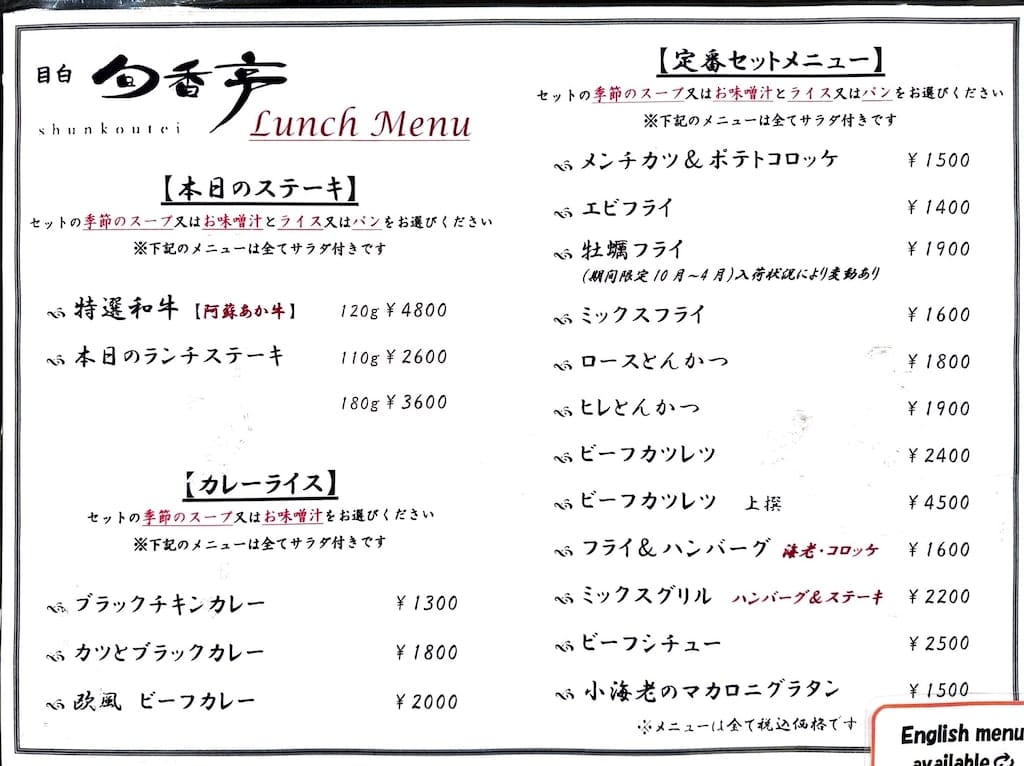 目白 旬香亭
shunkoutei
Lunch Menu
【本日のステーキ】
セットの季節のスープ又はお味噌汁とライス又はパンをお選びください
※下記のメニューは全てサラダ付きです
特選和牛 【阿蘇あか牛】 120g ¥4800
本日のランチステーキ 110g ¥2600
180g ¥3600
【カレーライス】
セットの季節のスープ又はお味噌汁をお選びください
※下記のメニューは全てサラダ付きです
ブラックチキンカレー ¥1300
カツとブラックカレー ¥1800
欧風 ビーフカレー ¥2000
【定番セットメニュー】
セットの季節のスープ又はお味噌汁とライス又はパンをお選びください
※下記のメニューは全てサラダ付きです
メンチカツ&ポテトコロッケ ¥1500
エビフライ ¥1400
牡蠣フライ ¥1900
(期間限定10月~4月)入荷状況により変動あり
ミックスフライ ¥1600
ロースとんかつ ¥1800
ヒレとんかつ ¥1900
ビーフカツレツ ¥2400
ビーフカツレツ 上撰 ¥4500
フライ&ハンバーグ 海老・コロッケ ¥1600
ミックスグリル ハンバーグ&ステーキ ¥2200
ビーフシチュー ¥2500
小海老のマカロニグラタン ¥1500
※メニューは全て税込価格です
English menu
available